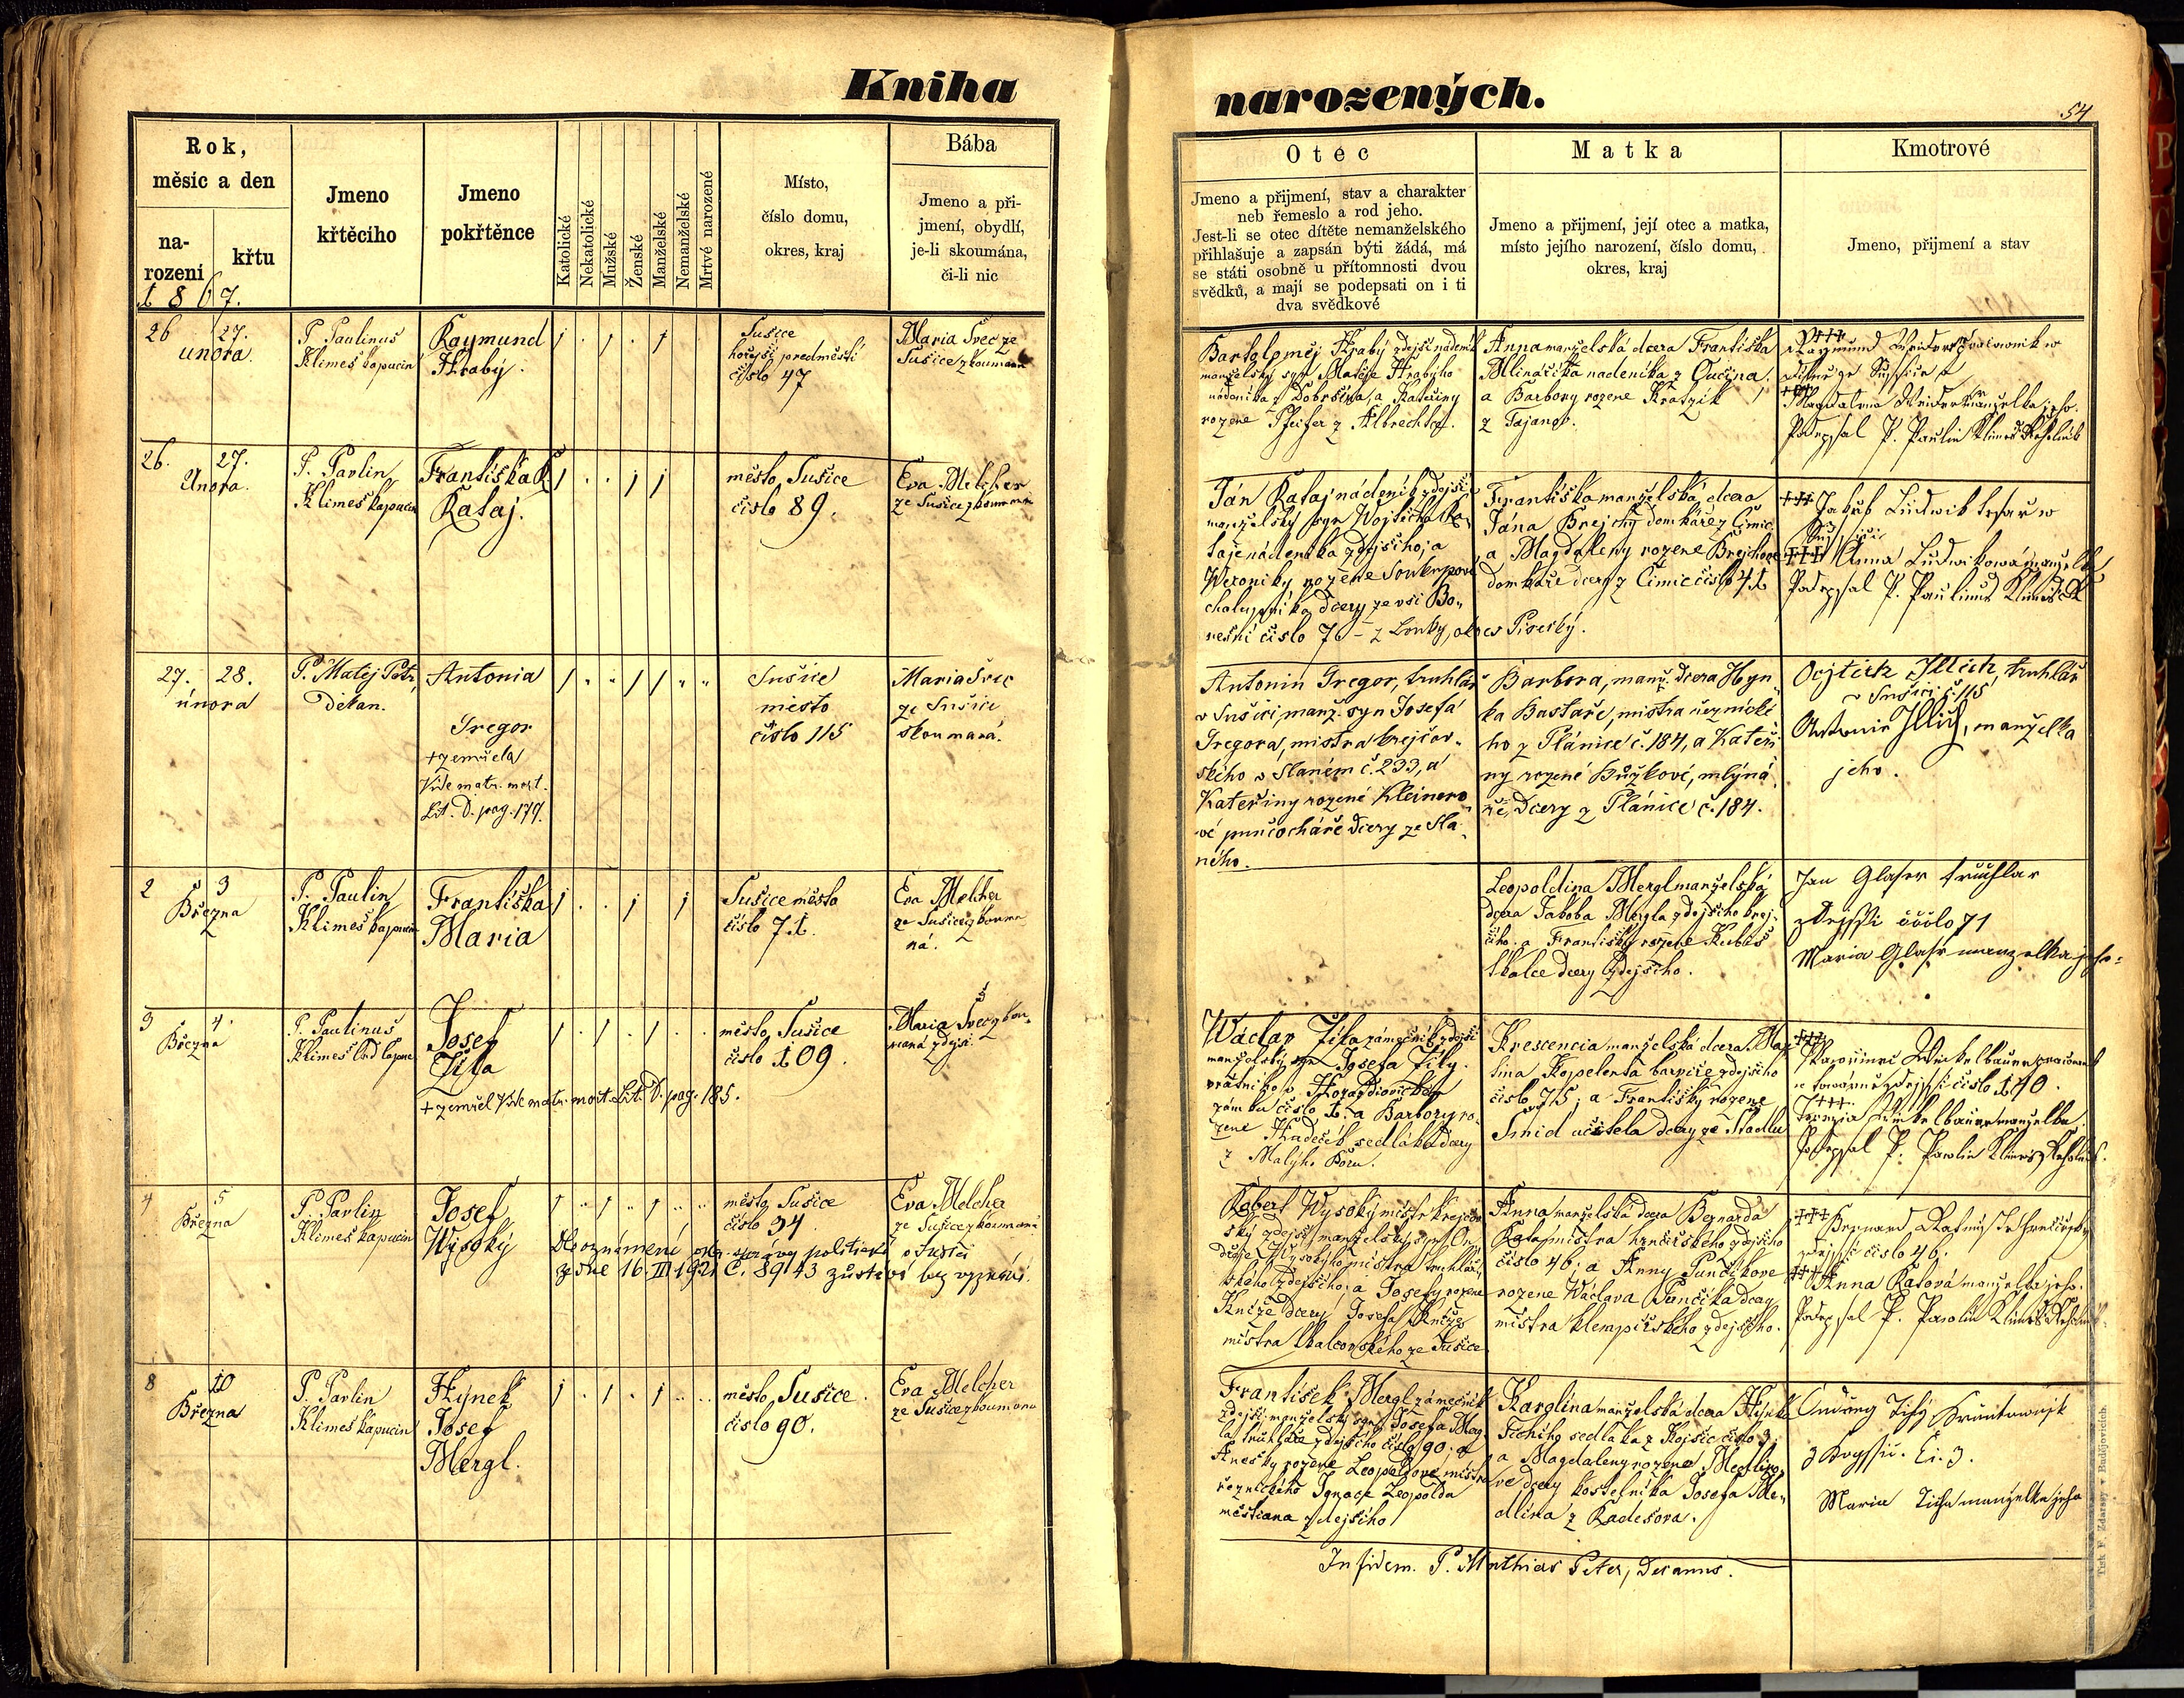 Kniha
narozených.
54
Rok,
měsic a den
na-
rozeni
křtu
1867.
Jmeno
křtěciho
Jmeno
pokřtěnce
Katolické
Nekatolické
Mužské
Ženské
Manželské
Nemanželské
Mrtvé narozené
Místo,
číslo domu,
okres, kraj
Bába
Jmeno a při-
jmení, obydlí,
je-li skoumána,
či-li nic
Otec
Jmeno a přijmení, stav a charakter
neb řemeslo a rod jeho.
Jest-li se otec dítěte nemanželského
přihlašuje a zapsán býti žádá, má
se státi osobně u přítomnosti dvou
svědků, a mají se podepsati on i ti
dva svědkové
Matka
Jmeno a přijmení, její otec a matka,
místo jejího narození, číslo domu,
okres, kraj
Kmotrové
Jmeno, přijmení a stav
26 27.
unora.
P. Paulinus
Klimeš kapucin
Raymund
Hrabý.
Sušice
hořejší predměstí
číslo 47
Maria Švec ze
Sušice zkoumana
Bartoloměj Hrabý zdejší nádeník
manželský syn Matěje Hrabýho
nádeníka z Dobršína, a Kateřiny
rozene Pfeifer z Albrechtce.
Anna manželská dcera Františka
Mlinářika nadenika z
a Barbory rozene Kratzik
z Tajanov.
+++
Raymund
Magdalena manželka jeho.
Podepsal P. Paulin Klimeš
26. 27.
Unora.
P. Pavlin
Klimeš kapucin
Františka
Kataj.
město Sušice
číslo 89.
Eva Melcher
ze Sušice zkoumana
Ján Kataj nádeník zdejší
manželský syn Wojtěcha Ka-
taje nádenika zdejšiho, a
Weroniky rozene Soukupové
chalupníka dcery ze vsi Bo-
nešní číslo 70 - z Louky, okres Pisecký.
Františka manželská dcera
Jána Brejchy domkáře z Čimic
a Magdaleny rozene Brejchove
domkáře dcery z Čimic číslo 41
+++ Jakub Ludwik tesař w
+++ Anna Ludwikowá manželka
Podepsal P. Paulinus Klimeš
27. 28.
února
P. Matěj Petr,
Děkan.
Antonia
Gregor
+ zemřela
Vide matr. mort.
Lit. D. pag. 179.
Sušice
město
číslo 115
Maria Švec
ze Sušice
skoumaná.
Antonin Gregor, truhlář
v Sušici, manž. syn Josefa
Gregora, mistra krejčov-
ského v Slaném č. 233, a
Kateřiny rozené Kleinero-
vé punčocháře dcery ze Sla-
ného.
Barbora, manž. dcera Hyn-
ka Bastaře, mistra řeznické-
ho z Plánice č. 184, a Kateři-
ny rozené Bůžkové, mlyná-
ře, dcery z Plánice č. 184.
Vojtěch Illich, truhlář
v Sušici č. 115
Antonie Illich, manželka
jeho.
2 3
Března
P. Paulin
Klimeš kapucin
Františka
Maria
Sušice město
číslo 71.
Eva Melcher
ze Sušice zkouma-
ná.
Leopoldina Mergl manželská
dcera Jakoba Mergla zdejšího krej-
čího. a Františky rozene Kubeš
tkalce dcery zdejšího.
Jan Glaser truhlar
zdejssi číslo 71
Maria Glaser manzelka jeho.
3 4.
Března
P. Paulinus
Klimeš
Josef
Žita
+ zemřel Vide matr. mort. Lit. D. pag. 185.
město Sušice
číslo 109.
Maria Švec zkou-
maná zdejší.
Wáclav Žita zámečník zdejší
manželský syn Josefa Žity.
vrátného w
zámku číslo 1. a Barbory ro-
zene Hudeček sedláka dcery
z Malýho Boru.
Krescencia manželská dcera Mar-
tina Kopelenta barvíře zdejšího
číslo 75; a Františky rozene
Šmid učitela dcery ze Stadlu
+++
zdejssí číslo 140.
+++.
manzelka.
Podepsal P. Paulin Klimeš
4 5
Března
P. Pavlin
Klimeš kapucin
Josef
Wysoký
město Sušice
číslo 34.
Dle oznámení okr. správy politické v Sušici
ze dne 16. II 1921 č. 8943 zůstává bez vyznání.
Eva Melcher
ze Sušice zkoumaná
Robert Wysoký mistr krejčov-
ský zdejší manželský syn On-
dřeje Wysokýho mistra truhlář-
ského zdejšího; a Josefy rozene
Kníže dcery Josefa Kníže
mistra tkalcovského ze Sušice
Anna manželská dcera Bernarda
Kata mistra hrnčířského zdejšího
číslo 46; a Anny Punčikove
rozene Wáclava Punčika dcery
mistra klempířského zdejšího.
+++ Bernard
zdejssí číslo 46.
+++ Anna Katová manzelka jeho.
Podepsal P. Paulin Klimeš
8 10
Března
P. Pavlin
Klimeš kapucin
Hynek
Josef
Mergl.
město Sušice.
číslo 90.
Eva Melcher
ze Sušice zkoumana
František Mergl zámečník
zdejší manželský syn Josefa Merg-
la truhláře zdejšího číslo 90; a
Anešky rozene Leopoldové mistra
řeznického Ignace Leopolda
měštiana zdejšího
Karolina manželská dcera Hynka
Tichýho sedláka z Kojšic číslo 3.
a Magdaleny rozene Medlino-
ve dcery kostelníka Josefa Me-
dlina z Radešova.
Ondrey Tichý
z Koyssic. Či. 3.
Maria Ticha manzelka jeho
In fidem. P. Mathias Peter, Decanus.
Tisk F. Zdarssy v Budějovicích.